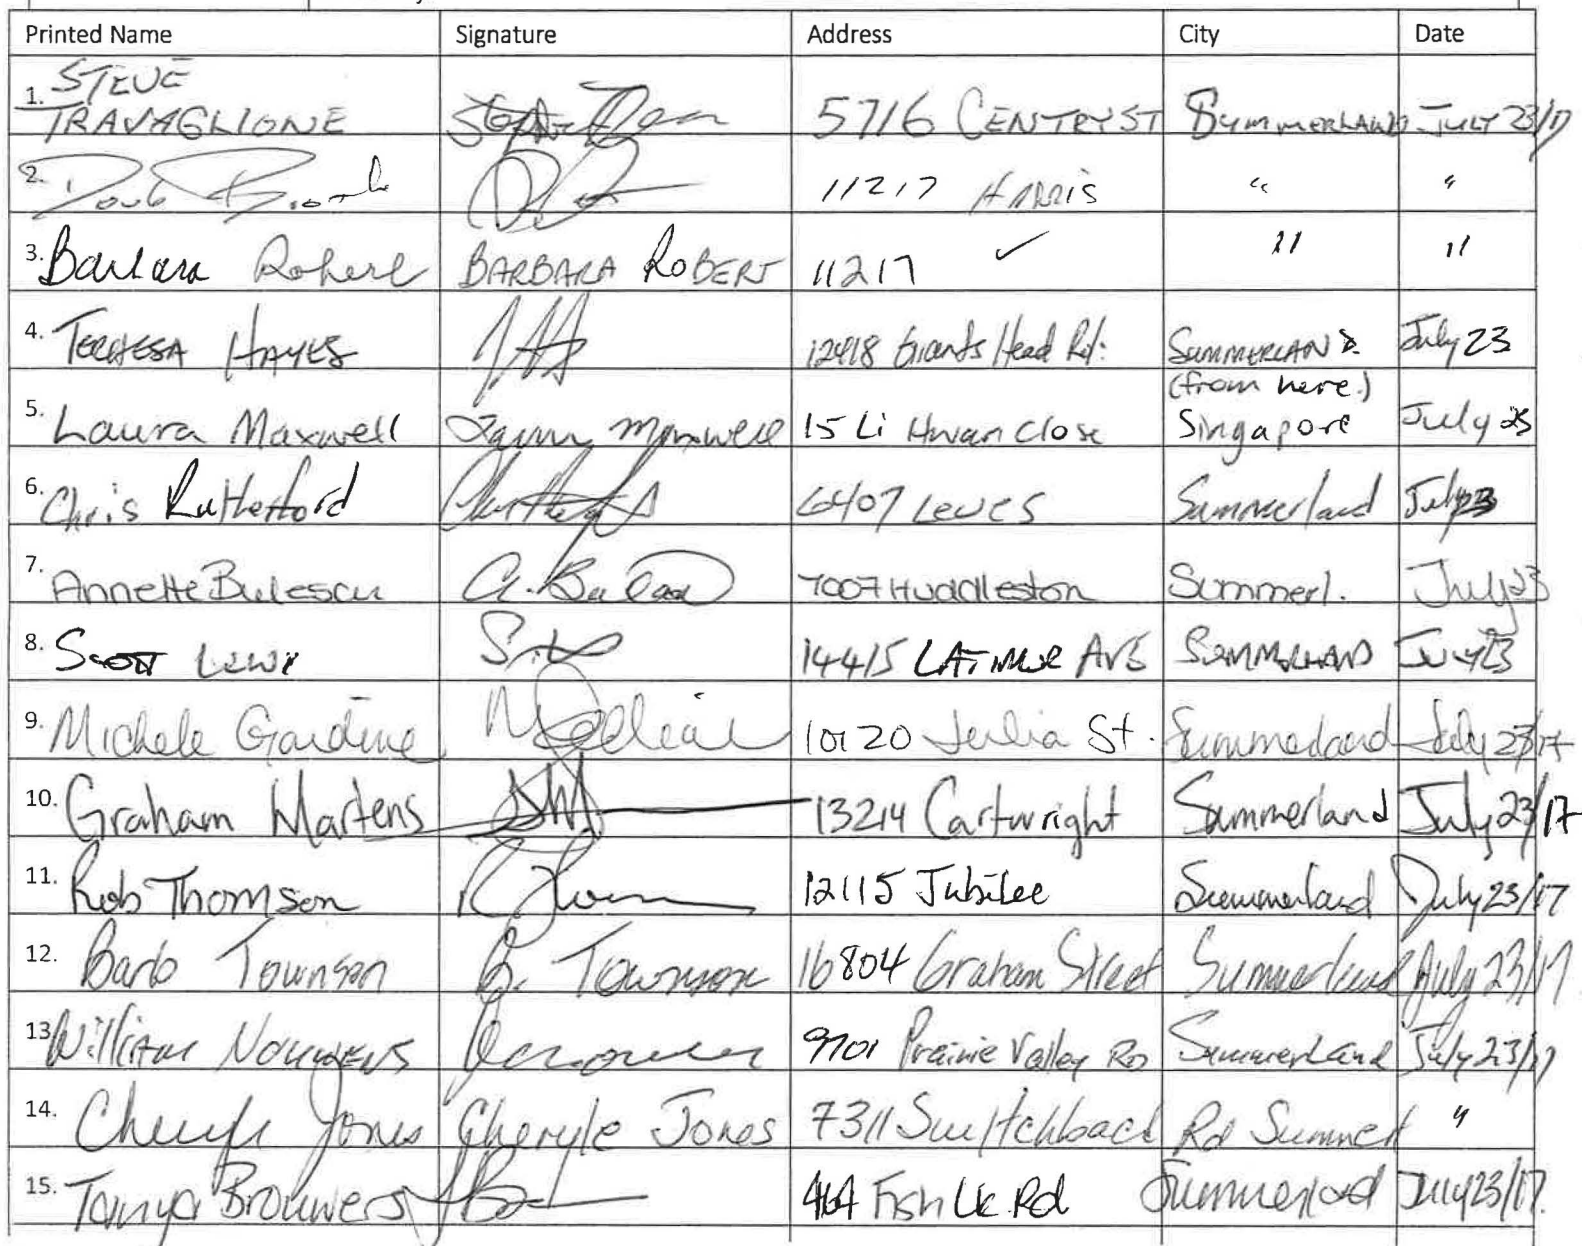 Printed Name Signature Address City Date
1. STEVE
TRAVAGLIONE 5716 CENTRY ST SUMMERLAND JULY 23/17
2. 11217 HARRIS " "
3. Barbara Robert BARBARA ROBERT 11217 ✓ " "
4. TERHESA HAYES 12418 Giants Head Rd. SUMMERLAND July 23
(from here.)
5. Laura Maxwell Maxwell 15 Li Hwan Close Singapore July 23
6. Chris Rutherford 6407 Lewes Summerland July 23
7. Annette Bulescu 7007 Huddleston Summerl. July 23
8. SCOTT 14415 LATIMER AVE SUMMERLAND JULY 23
9. Michele 10120 Julia St. Summerland July 23/17
10. Graham Martens 13214 Cartwright Summerland July 23/17
11. Rob Thomson 12115 Jubilee Summerland July 23/17
12. Barb Townson B. Townson 16804 Graham Street Summerland July 23/17
13. William NOUWENS 9701 Prairie Valley RD Summerland July 23/17
14. Cheryle Jones Cheryle Jones 7311 Switchback Rd Summerl "
15. Tanya Brouwers 464 Fish Lk Rd Summerland July 23/17.